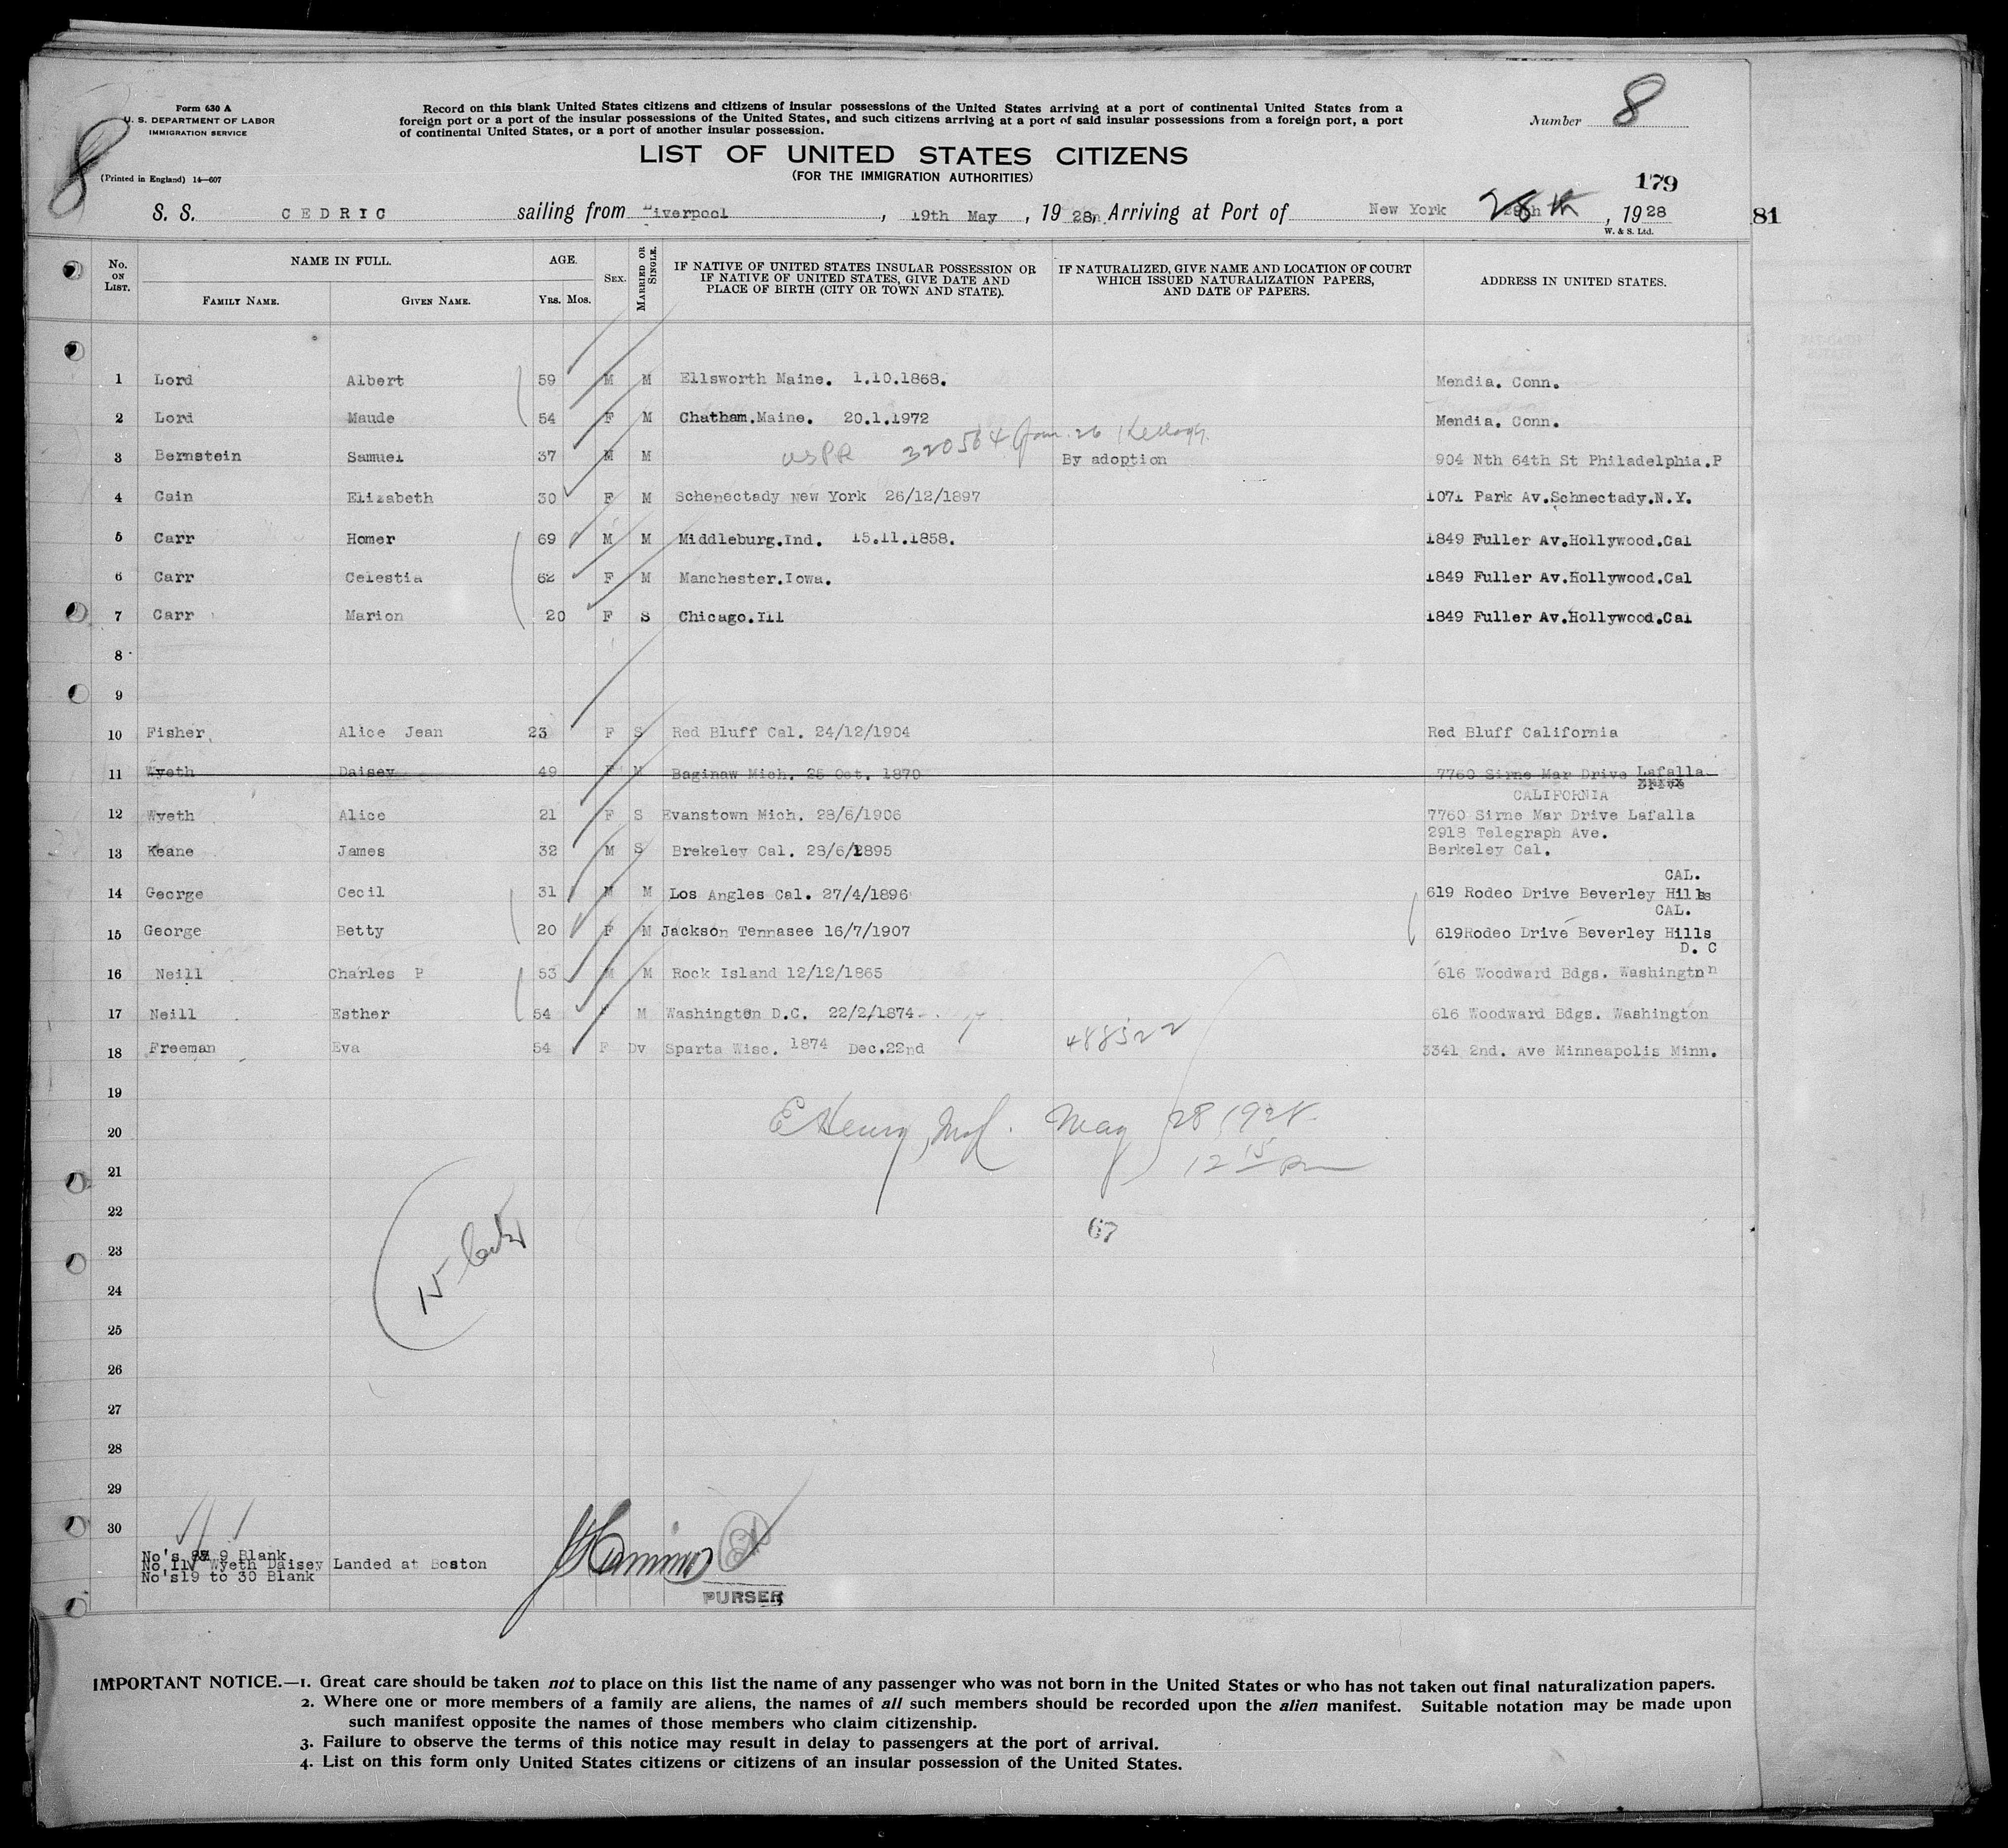 Form 630 A
U. S. DEPARTMENT OF LABOR
IMMIGRATION SERVICE
(Printed in England) 14—607
8
Record on this blank United States citizens and citizens of insular possessions of the United States arriving at a port of continental United States from a
foreign port or a port of the insular possessions of the United States, and such citizens arriving at a port of said insular possessions from a foreign port, a port
of continental United States, or a port of another insular possession.
Number 8
LIST OF UNITED STATES CITIZENS
(FOR THE IMMIGRATION AUTHORITIES)
179
S. S. CEDRIC sailing from Liverpool, 19th May, 1928, Arriving at Port of New York 28th, 1928
81
W. & S. Ltd.
No. ON LIST. NAME IN FULL. FAMILY NAME. GIVEN NAME. AGE. YRS. MOS. SEX. MARRIED OR SINGLE. IF NATIVE OF UNITED STATES INSULAR POSSESSION OR IF NATIVE OF UNITED STATES, GIVE DATE AND PLACE OF BIRTH (CITY OR TOWN AND STATE). IF NATURALIZED, GIVE NAME AND LOCATION OF COURT WHICH ISSUED NATURALIZATION PAPERS, AND DATE OF PAPERS. ADDRESS IN UNITED STATES.
1 Lord Albert 59 M M Ellsworth Maine. 1.10.1868. Mendia. Conn.
2 Lord Maude 54 F M Chatham.Maine. 20.1.1972 Mendia. Conn.
USPR 320564 Jan. 26 Kellogg.
3 Bernstein Samuel 37 M M By adoption 904 Nth 64th St Philadelphia.P
4 Cain Elizabeth 30 F M Schenectady New York 26/12/1897 1071 Park Av.Schnectady.N.Y.
5 Carr Homer 69 M M Middleburg.Ind. 15.11.1858. 1849 Fuller Av.Hollywood.Cal
6 Carr Celestia 62 F M Manchester.Iowa. 1849 Fuller Av.Hollywood.Cal
7 Carr Marion 20 F S Chicago.Ill 1849 Fuller Av.Hollywood.Cal
8
9
10 Fisher Alice Jean 23 F S Red Bluff Cal. 24/12/1904 Red Bluff California
11 Wyeth Daisey 49 F M Baginaw Mich. 25 Oct. 1870 7760 Sirne Mar Drive Lafalla
CALIFORNIA
12 Wyeth Alice 21 F S Evanstown Mich. 28/6/1906 7760 Sirne Mar Drive Lafalla
2918 Telegraph Ave.
13 Keane James 32 M S Brekeley Cal. 28/6/1895 Berkeley Cal.
CAL.
14 George Cecil 31 M M Los Angles Cal. 27/4/1896 619 Rodeo Drive Beverley Hills
CAL.
15 George Betty 20 F M Jackson Tennasee 16/7/1907 619Rodeo Drive Beverley Hills
D. C
16 Neill Charles P 53 M M Rock Island 12/12/1865 616 Woodward Bdgs. Washingtnn
17 Neill Esther 54 F M Washington D.C. 22/2/1874 616 Woodward Bdgs. Washington
18 Freeman Eva 54 F Dv Sparta Wisc. 1874 Dec.22nd 488522 3341 2nd. Ave Minneapolis Minn.
19
20 E Henry, May 28 1928.
21 12 15 pm
22
67
23
24
15
25
26
27
28
29
30
No's 8& 9 Blank
No 11 Wyeth Daisey Landed at Boston
No's19 to 30 Blank
PURSER
IMPORTANT NOTICE.—1. Great care should be taken not to place on this list the name of any passenger who was not born in the United States or who has not taken out final naturalization papers.
2. Where one or more members of a family are aliens, the names of all such members should be recorded upon the alien manifest. Suitable notation may be made upon
such manifest opposite the names of those members who claim citizenship.
3. Failure to observe the terms of this notice may result in delay to passengers at the port of arrival.
4. List on this form only United States citizens or citizens of an insular possession of the United States.